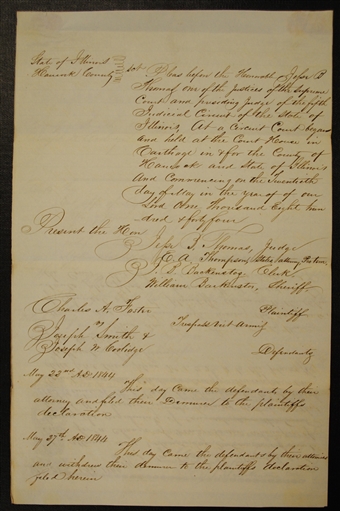 State of Illinois
Hancock County Sct
Pleas before the Honorable Jesse B
Thomas one of the Justices of the Supreme
Court and presiding judge of the fifth
Judicial Circuit of the State of
Illinois, At a Circuit Court begun
and held at the Court House in
Carthage in & for the County of
Hancock and State of Illinois
And Commencing on the Twentieth
day of May in the year of our
Lord One Thousand Eight hun
dred & forty four
Present the Hon
Jesse B. Thomas, Judge
E. A. Thompson, States Attorney
J. B. Backenstos Clerk
William Backenstos, Sheriff
Charles A. Foster Plaintiff
vs Trespass vi et armis
Joseph Smith &
Joseph W Coolidge Defendants
May 22nd AD 1844
This day came the defendants by their
attorney and filed their Demurrer to the plaintiffs
declaration
May 27th AD 1844
This day came the defendants by their attornies
and withdrew their demurrer to the plaintiffs declaration
filed herein